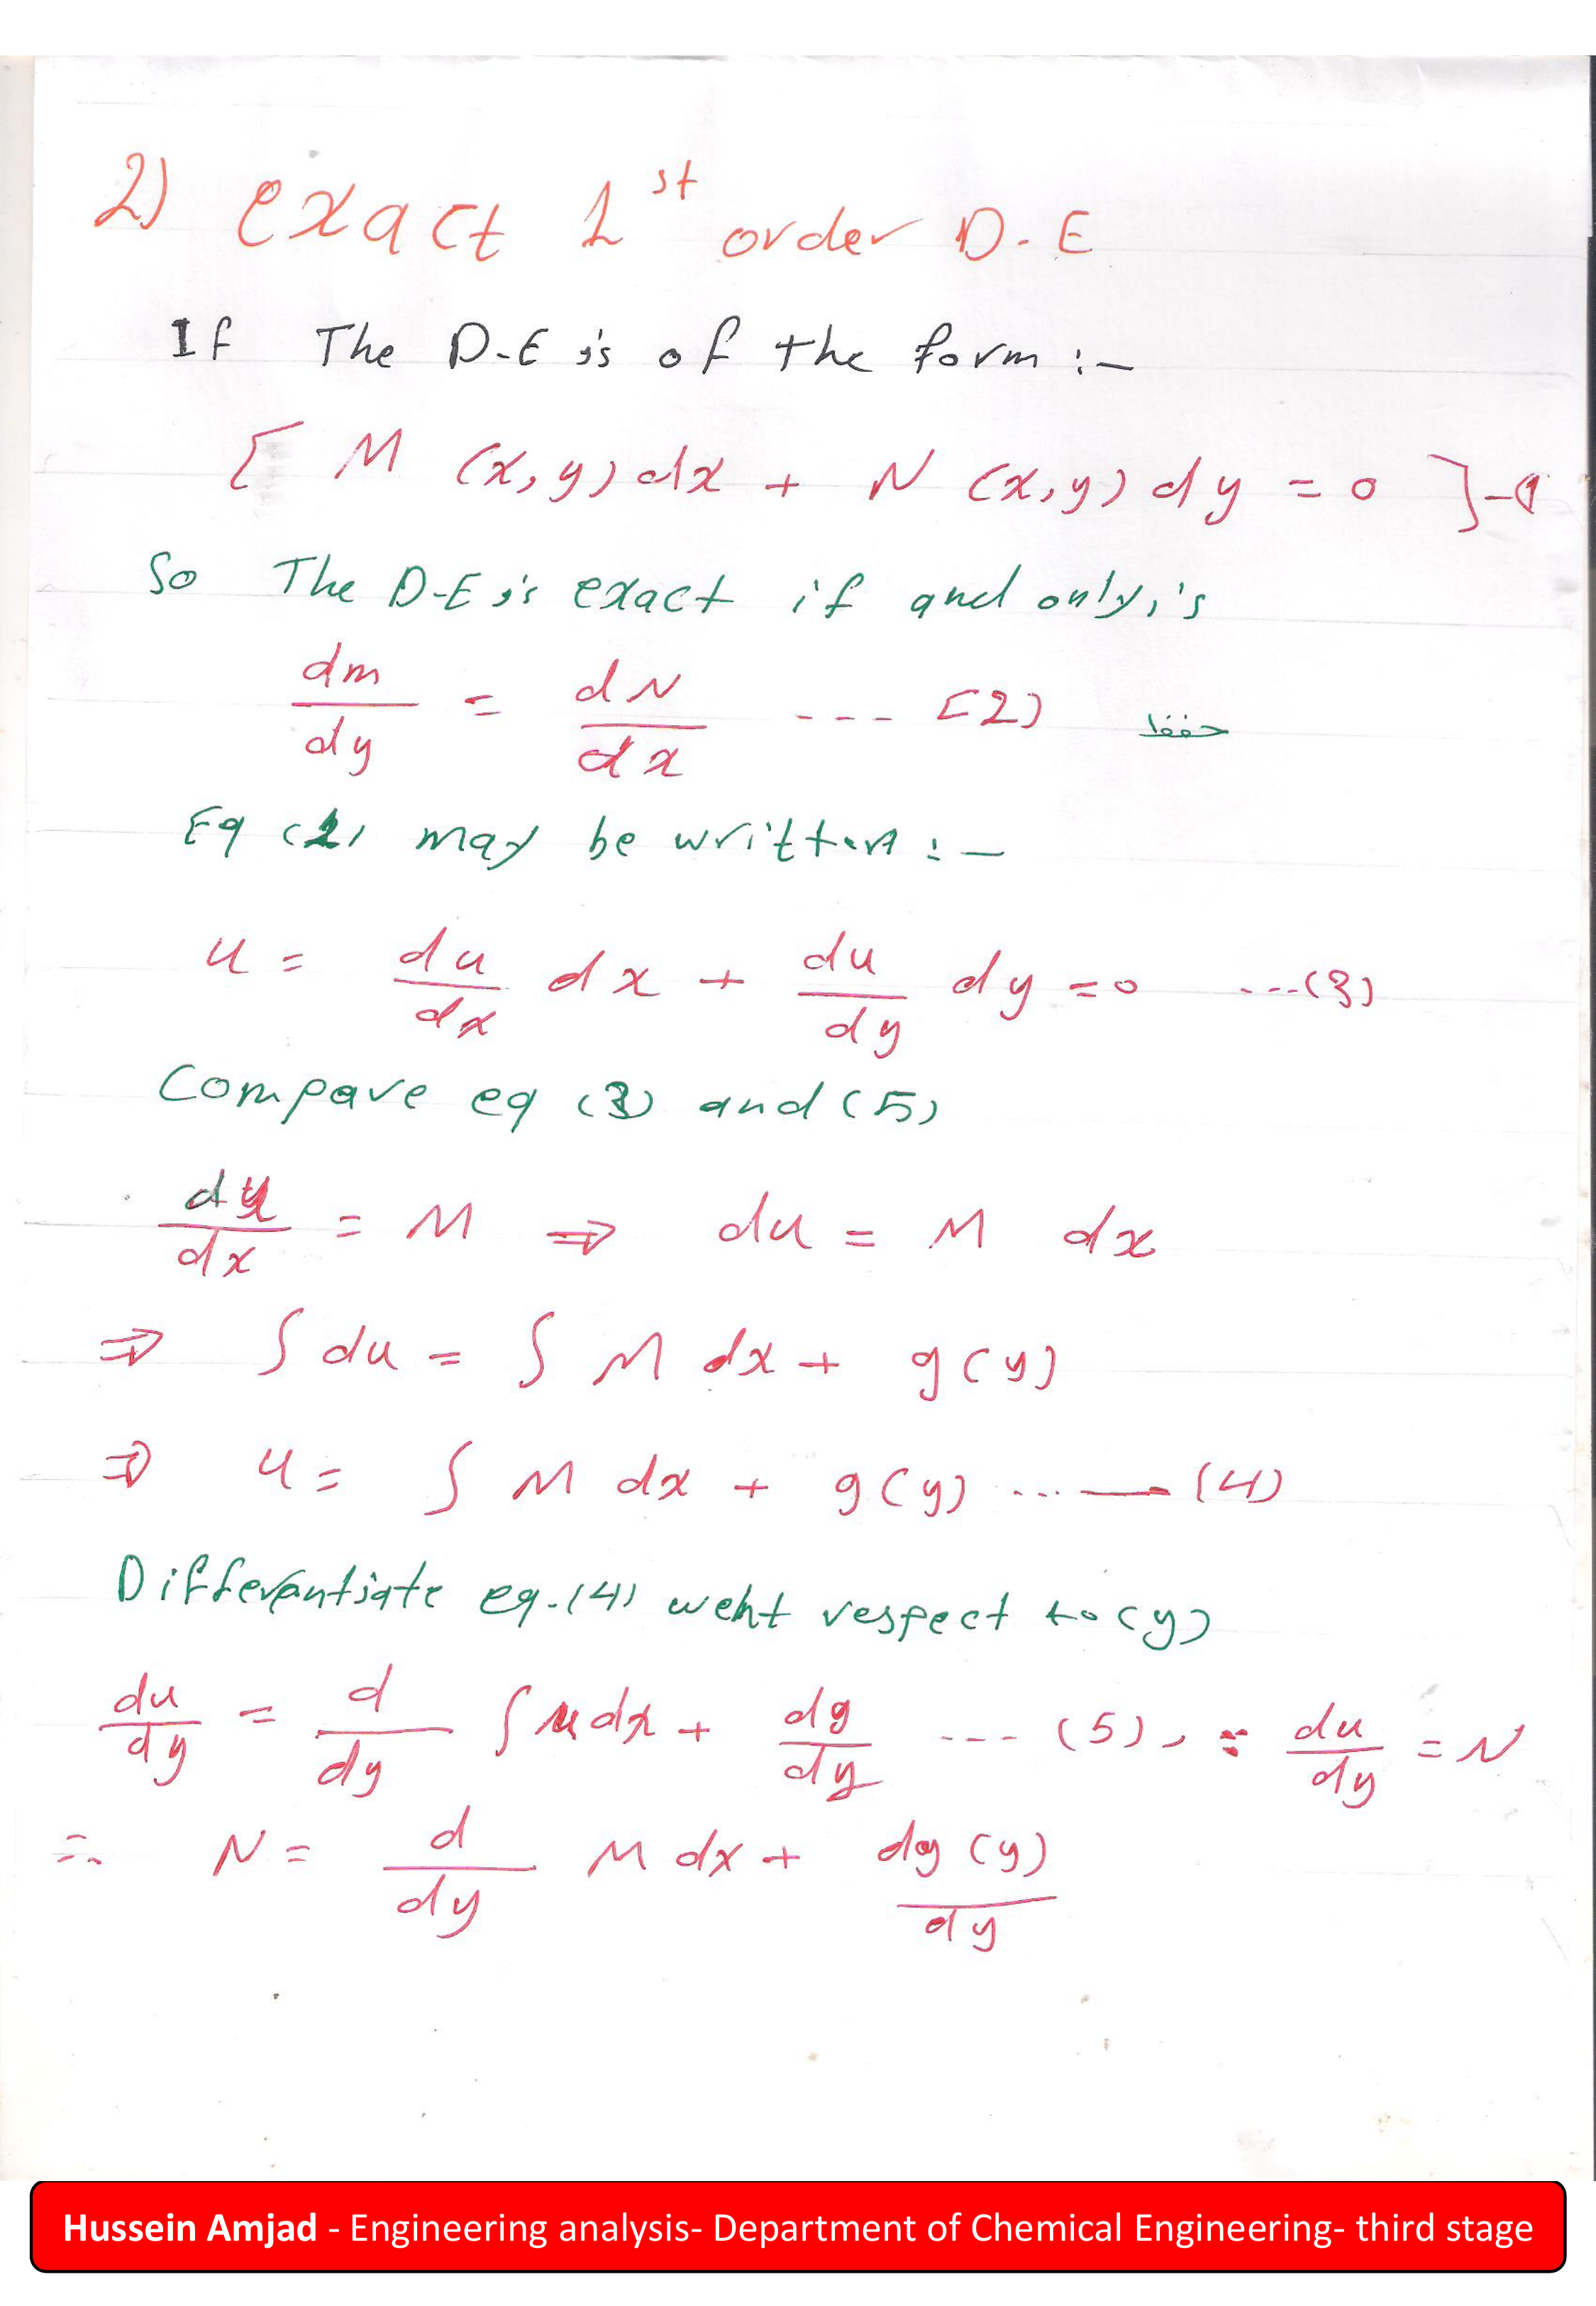 2) exact 1st order D-E
If The D-E is of the form :-
[ M (x,y) dx + N (x,y) dy = 0 ]-(1
So The D-E is exact if and only is
dm/dy = dN/dx --- [2) حفظ
Eq (2) may be written :-
u = du/dx dx + du/dy dy = 0 ---(3)
Compare eq (3) and (5)
du/dx = M ⇒ du = M dx
⇒ ∫ du = ∫ M dx + g(y)
⇒ u = ∫ M dx + g(y) ...— (4)
Differentiate eq.(4) weht respect to (y)
du/dy = d/dy ∫ M dx + dg/dy --- (5), ∵ du/dy = N
∴ N = d/dy M dx + dg(y)/dy
Hussein Amjad - Engineering analysis- Department of Chemical Engineering- third stage